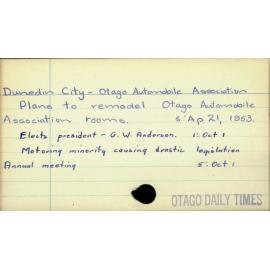 Dunedin City - Otago Automobile Association
Plans to remodel Otago Automobile
Association rooms. 5: Ap 21, 1953.
Elects president - G. W. Anderson. 1: Oct 1
Motoring minority causing drastic legislation
Annual meeting 5: Oct 1
OTAGO DAILY TIMES